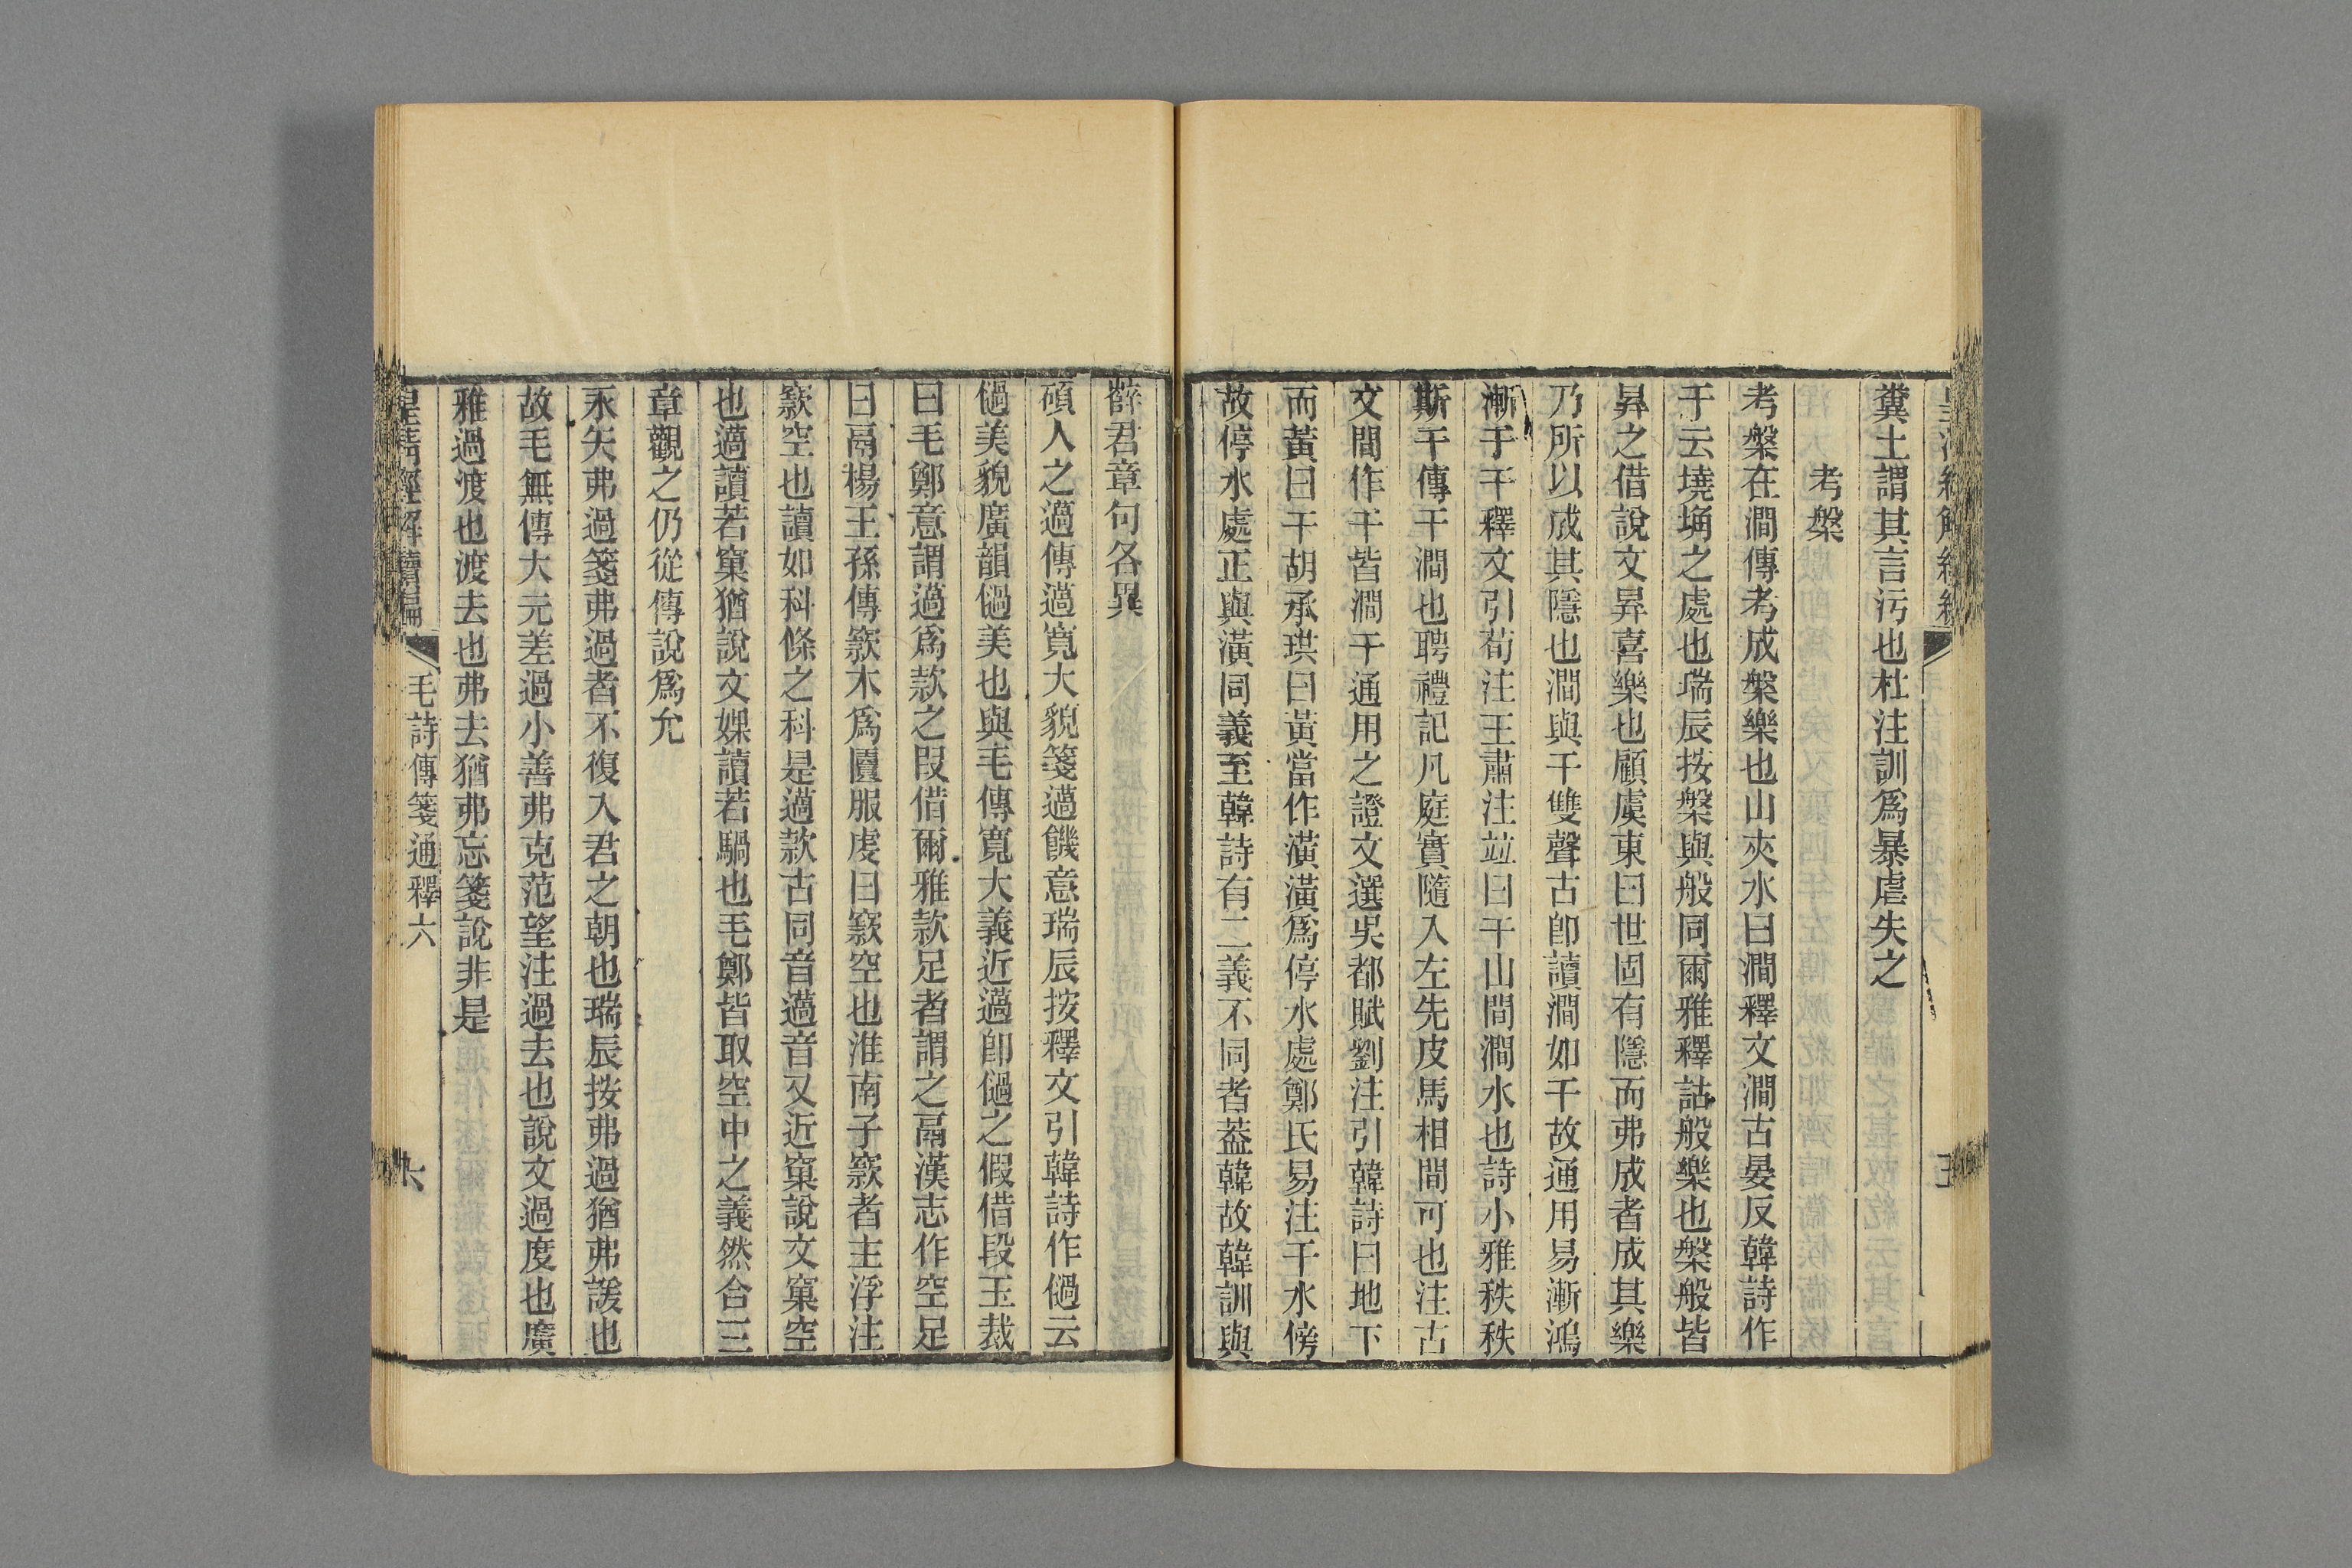 糞土謂其言污也杜注訓爲暴虐失之
考槃
考槃在澗傳考成槃樂也山夾水曰澗釋文澗古晏反韓詩作
干云墝埆之處也瑞辰按槃與般同爾雅釋詁般樂也槃般皆
昪之借說文昪喜樂也顧虞東曰世固有隱而弗成者成其樂
乃所以成其隱也澗與干雙聲古卽讀澗如干故通用易漸鴻
漸于干釋文引荀注王肅注竝曰干山間澗水也詩小雅秩秩
斯干傳干澗也聘禮記凡庭實隨入左先皮馬相間可也注古
文間作干皆澗干通用之證文選吳都賦劉注引韓詩曰地下
而黃曰干胡承珙曰黃當作潢潢爲停水處鄭氏易注干水傍
故停水處正與潢同義至韓詩有二義不同者葢韓故韓訓與
薛君章句各異
碩人之薖傳薖寬大貌箋薖饑意瑞辰按釋文引韓詩作㗻云
㗻美貌廣韻㗻美也與毛傳寬大義近薖卽㗻之假借段玉裁
曰毛鄭意謂薖爲款之叚借爾雅款足者謂之鬲漢志作空足
曰鬲楊王孫傳窾木爲匵服虔曰窾空也淮南子窾者主浮注
窾空也讀如科條之科是薖款古同音薖音又近窠說文窠空
也薖讀若窠猶說文婐讀若騧也毛鄭皆取空中之義然合三
章觀之仍從傳說爲允
永矢弗過箋弗過者不復入君之朝也瑞辰按弗過猶弗諼也
故毛無傳大元差過小善弗克范望注過去也說文過度也廣
雅過渡也渡去也弗去猶弗忘箋說非是
皇清經解續編
毛詩傳箋通釋六
六